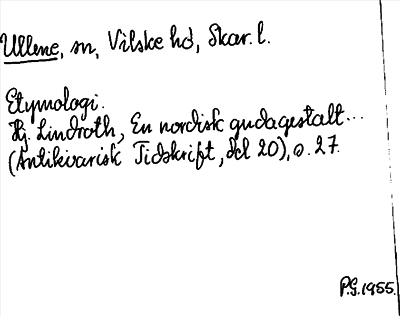 Ullene, sn, Vilske hd, Skar. l.
Etymologi.
Hj. Lindroth, En nordisk gudagestalt...
(Antikvarisk Tidskrift, del 20), s. 27.
P.G. 1955.